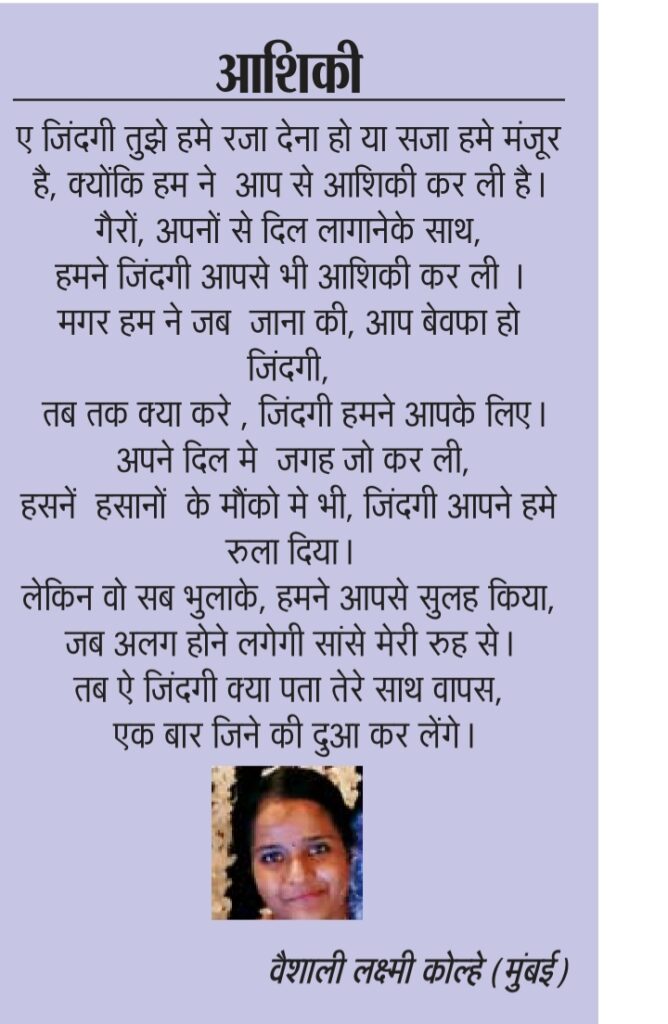 आशिकी
ए जिंदगी तुझे हमे रजा देना हो या सजा हमे मंजूर
है, क्योंकि हम ने आप से आशिकी कर ली है।
गैरों, अपनों से दिल लागानेके साथ,
हमने जिंदगी आपसे भी आशिकी कर ली ।
मगर हम ने जब जाना की, आप बेवफा हो
जिंदगी,
तब तक क्या करे , जिंदगी हमने आपके लिए।
अपने दिल मे जगह जो कर ली,
हसनें हसानों के मौंको मे भी, जिंदगी आपने हमे
रुला दिया।
लेकिन वो सब भुलाके, हमने आपसे सुलह किया,
जब अलग होने लगेगी सांसे मेरी रुह से।
तब ऐ जिंदगी क्या पता तेरे साथ वापस,
एक बार जिने की दुआ कर लेंगे।
वैशाली लक्ष्मी कोल्हे (मुंबई)